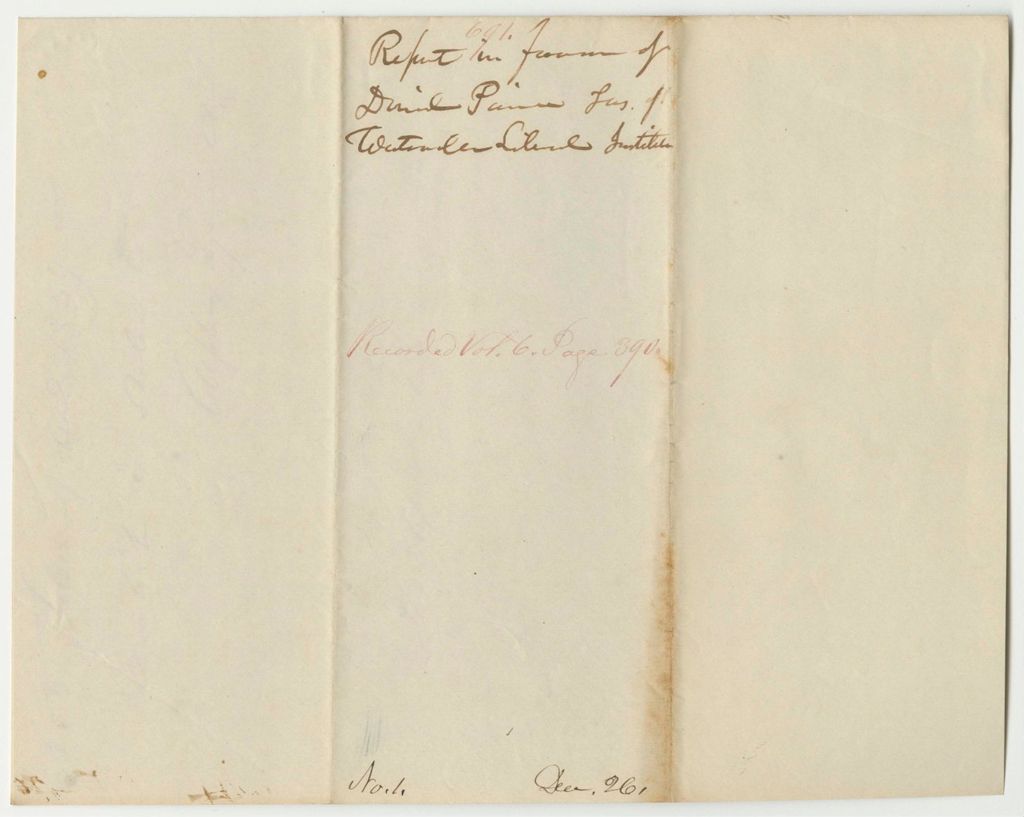 691.
Report in favor of
David Paine Treas. of
Waterville Liberal Institute
Recorded Vol. 6. Page. 390.
No. 1.
Dec. 26.